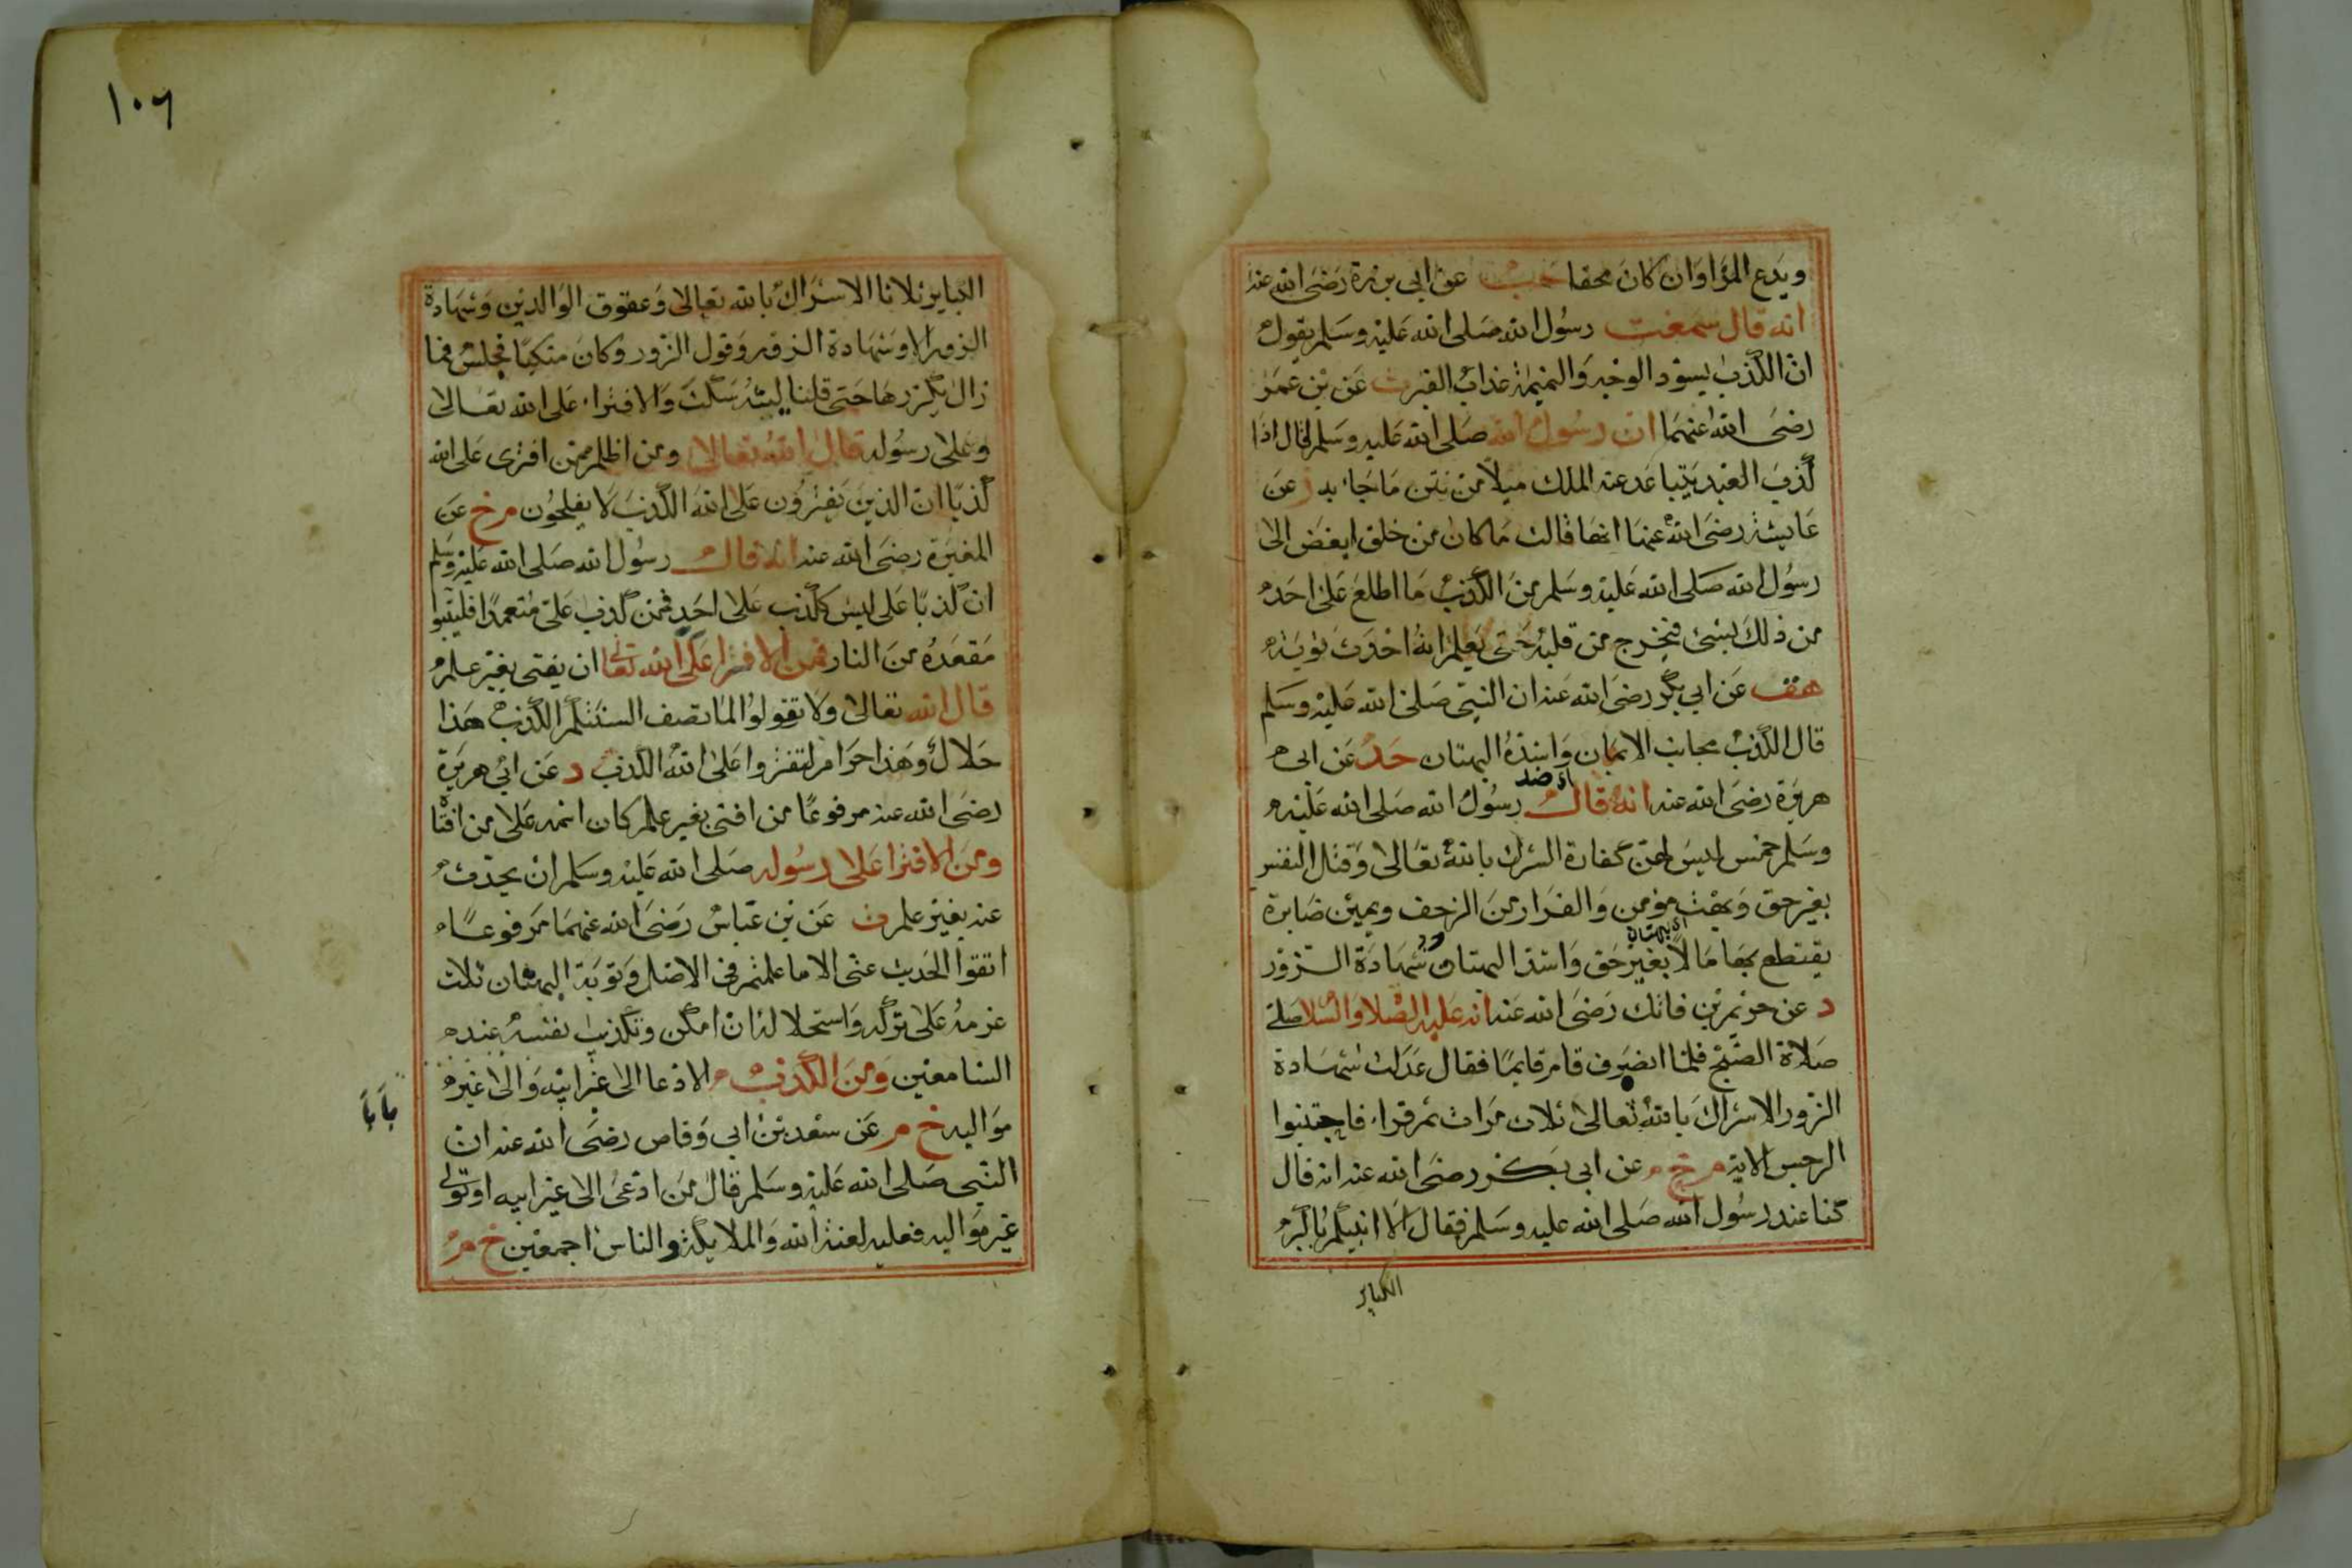 ويدع المرا وان كان محقا حب عن ابي برزة رضى الله عنه
انه قال سمعت رسول الله صلى الله عليه وسلم يقول
ان الكذب يسود الوجه والنميمة عذاب القبر ت عن بن عمر
رضى الله عنهما ان رسول الله صلى الله عليه وسلم قال اذا
كذب العبد يتباعد عنه الملك ميلا من نتن ما جاء به ز عن
عايشة رضى الله عنها انها قالت ما كان من خلق ابغض الى
رسول الله صلى الله عليه وسلم من الكذب ما اطلع على احد
من ذلك بشئ فيخرج من قلبه حتى يعلم انه احدث توبة
هق عن ابي بكر رضى الله عنه ان النبى صلى الله عليه وسلم
قال الكذب مجانب الايمان واشده البهتان حد عن ابى
هريرة رضى الله عنه انه قال رسول الله صلى الله عليه
وسلم خمس ليس لهن كفارة الشرك بالله تعالى وقتل النفس
بغير حق وبهت مومن والفرار من الزحف ويمين صابرة
يقتطع بها مالا بغير حق واشد البهتان شهادة الزور
د عن خريم بن فاتك رضى الله عنه انه عليه الصلا والسلا صلى
صلاة الصبح فلما انصرف قام قايما فقال عدلت شهادة
الزور الاشراك بالله تعالى ثلاث مرات ثم قرا فاجتنبوا
الرجس الاية م خ م عن ابى بكر رضى الله عنه انه قال
كنا عند رسول الله صلى الله عليه وسلم فقال الا انبيكم باكبر
الكباير
١٠٦
الكباير ثلاثا الاشراك بالله تعالى وعقوق الوالدين وشهادة
الزور الا وشهادة الزور وقول الزور وكان متكيا فجلس فما
زال يكررها حتى قلنا ليته سكت والافترا على الله تعالى
وعلى رسوله قال الله تعالى ومن اظلم ممن افترى على الله
كذبا ان الذين يفترون على الله الكذب لا يفلحون م خ عن
المغيرة رضى الله عنه انه قال رسول الله صلى الله عليه وسلم
ان كذبا على ليس ككذب على احد فمن كذب على متعمدا فليتبوا
مقعده من النار فمن الافترا على الله تعالى ان يفتى بغير علم
قال الله تعالى ولا تقولوا لما تصف السنتكم الكذب هذا
حلال وهذا حرام لتفتروا على الله الكذب د عن ابي هريرة
رضى الله عنه مرفوعا من افتى بغير علم كان اثمه على من افتا
ومن الافترا على رسوله صلى الله عليه وسلم ان يحدث
عنه بغير علم ت عن بن عباس رضى الله عنهما مرفوعا
اتقوا الحديث عنى الا ما علمتم فى الاصل وتوبة البهتان ثلث
عزمه على تركه واستحلاله ان امكن وتكذيب نفسه عند
السامعين ومن الكذب الادعا الى غير ابيه والى غير
مواليه خ م عن سعد بن ابي وقاص رضى الله عنه ان
النبى صلى الله عليه وسلم قال من ادعى الى غير ابيه او تولى
غير مواليه فعليه لعنة الله والملايكة والناس اجمعين خ م